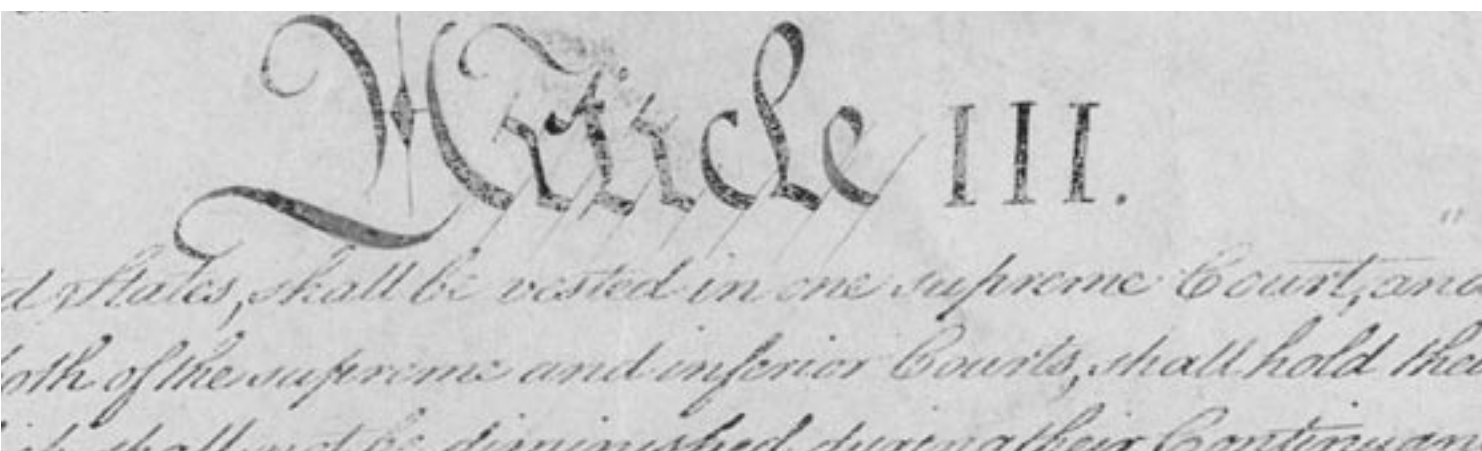 Article III.
d States, shall be vested in one supreme Court, and
oth of the supreme and inferior Courts, shall hold thei
shall not be diminished during their Continuan